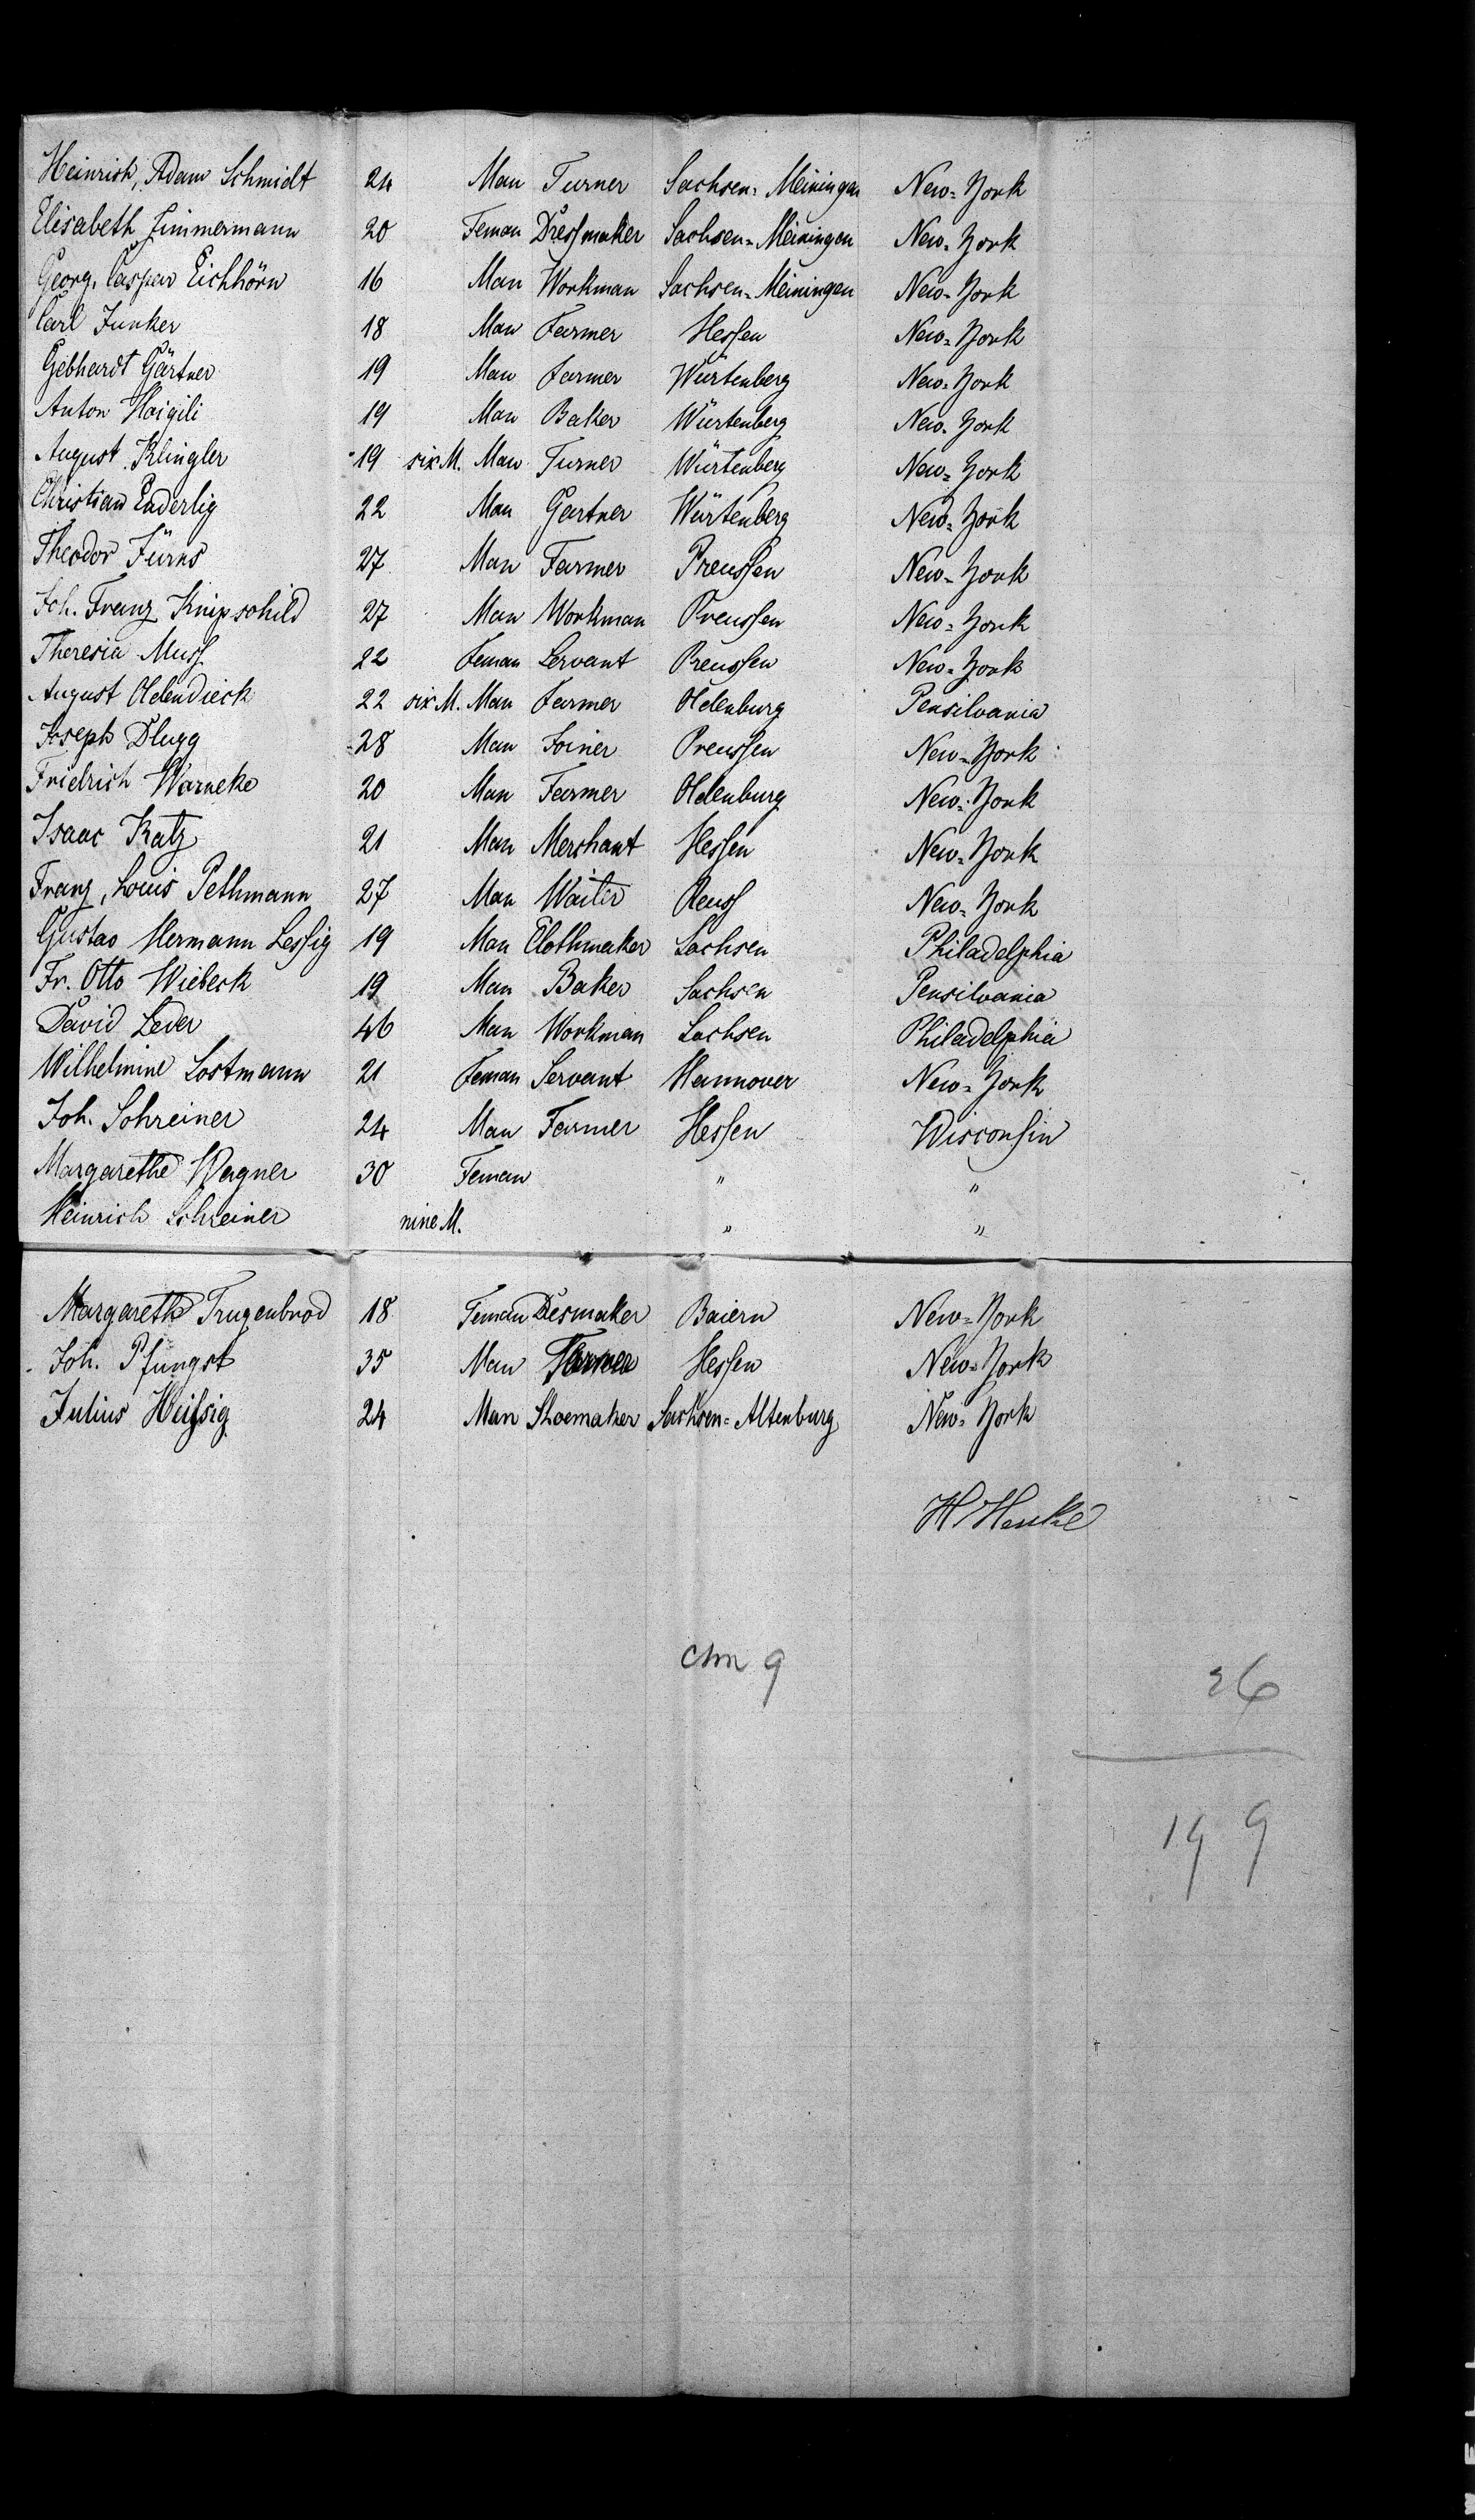 Heinrich, Adam Schmidt 24 Man Turner Sachsen=Meiningen New=York
Elisabeth Zimmermann 20 Feman Dressmaker Sachsen=Meiningen New=York
Georg, Caspar Eichhörn 16 Man Workman Sachsen=Meiningen New=York
Carl Junker 18 Man Farmer Hessen New=York
Gebhardt Gärtner 19 Man Farmer Würtenberg New=York
Anton Haigili 19 Man Baker Würtenberg New=York
August Klingler 19 six M. Man Turner Würtenberg New=York
Christian Enderlig 22 Man Gartner Würtenberg New=York
Theodor Fürns 27 Man Farmer Preussen New=York
Joh. Franz Knipschild 27 Man Workman Preussen New=York
Theresia Muss 22 Feman Servant Preussen New=York
August Oldendieck 22 six M. Man Farmer Oldenburg Pensilvania
Joseph Dlugg 28 Man Joiner Preussen New=York
Friedrich Warneke 20 Man Farmer Oldenburg New=York
Isaac Katz 21 Man Merchant Hessen New=York
Franz, Louis Pethmann 27 Man Waiter Reuss New=York
Gustav Hermann Lessig 19 Man Clothmaker Sachsen Philadelphia
Fr. Otto Wiebeck 19 Man Baker Sachsen Pensilvania
David Leder 46 Man Workman Sachsen Philadelphia
Wilhelmine Lostmann 21 Feman Servant Hannover New=York
Joh. Schreiner 24 Man Farmer Hessen Wisconsin
Margarethe Wagner 30 Feman " "
Heinrich Schreiner nine M. " "
Margareth Trugenbrod 18 Feman Desmaker Baiern New=York
Joh. Pfungst 35 Man Farmer Hessen New=York
Julius Heissig 24 Man Shoemaker Sachsen=Altenburg New=York
H Henke
9
26
199